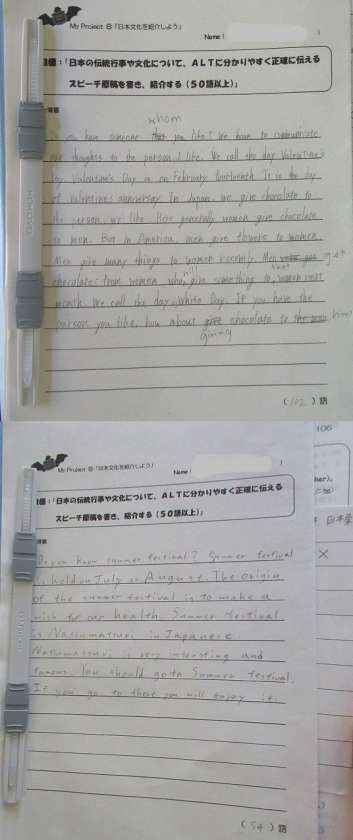 My Project ⑥「日本文化を紹介しよう」
Name (
目標:「日本の伝統行事や文化について、ALTに分かりやすく正確に伝える
スピーチ原稿を書き、紹介する(50語以上)」
whom
you have someone that you like? We have to communicate
our thoughts to the person I like. We call the day Valentine's
Day. Valentine's Day is on February fourteenth. It is the day
of Valentine's anniversary. In Japan, we give chocolate to
the person we like. Here generally women give chocolate
to men. But in America, men give flowers to women.
Men give many things to women recently. Men get
chocolate from women who will give something to women next
month. We call the day White Day. If you have the
person you like, how about give chocolate to him?
giving
(102)語
My Project ⑥「日本文化を紹介しよう」
Name (
目標:「日本の伝統行事や文化について、ALTに分かりやすく正確に伝える
スピーチ原稿を書き、紹介する(50語以上)」
Do you know summer festival? Summer festival
is held on July or August. The origin
of the summer festival is to make a
wish for our health. Summer festival
is Natsumatsuri in Japanese.
Natsumatsuri is very interesting and
famous. You should go to Summer festival.
If you go to there you will enjoy it.
(54)語
106